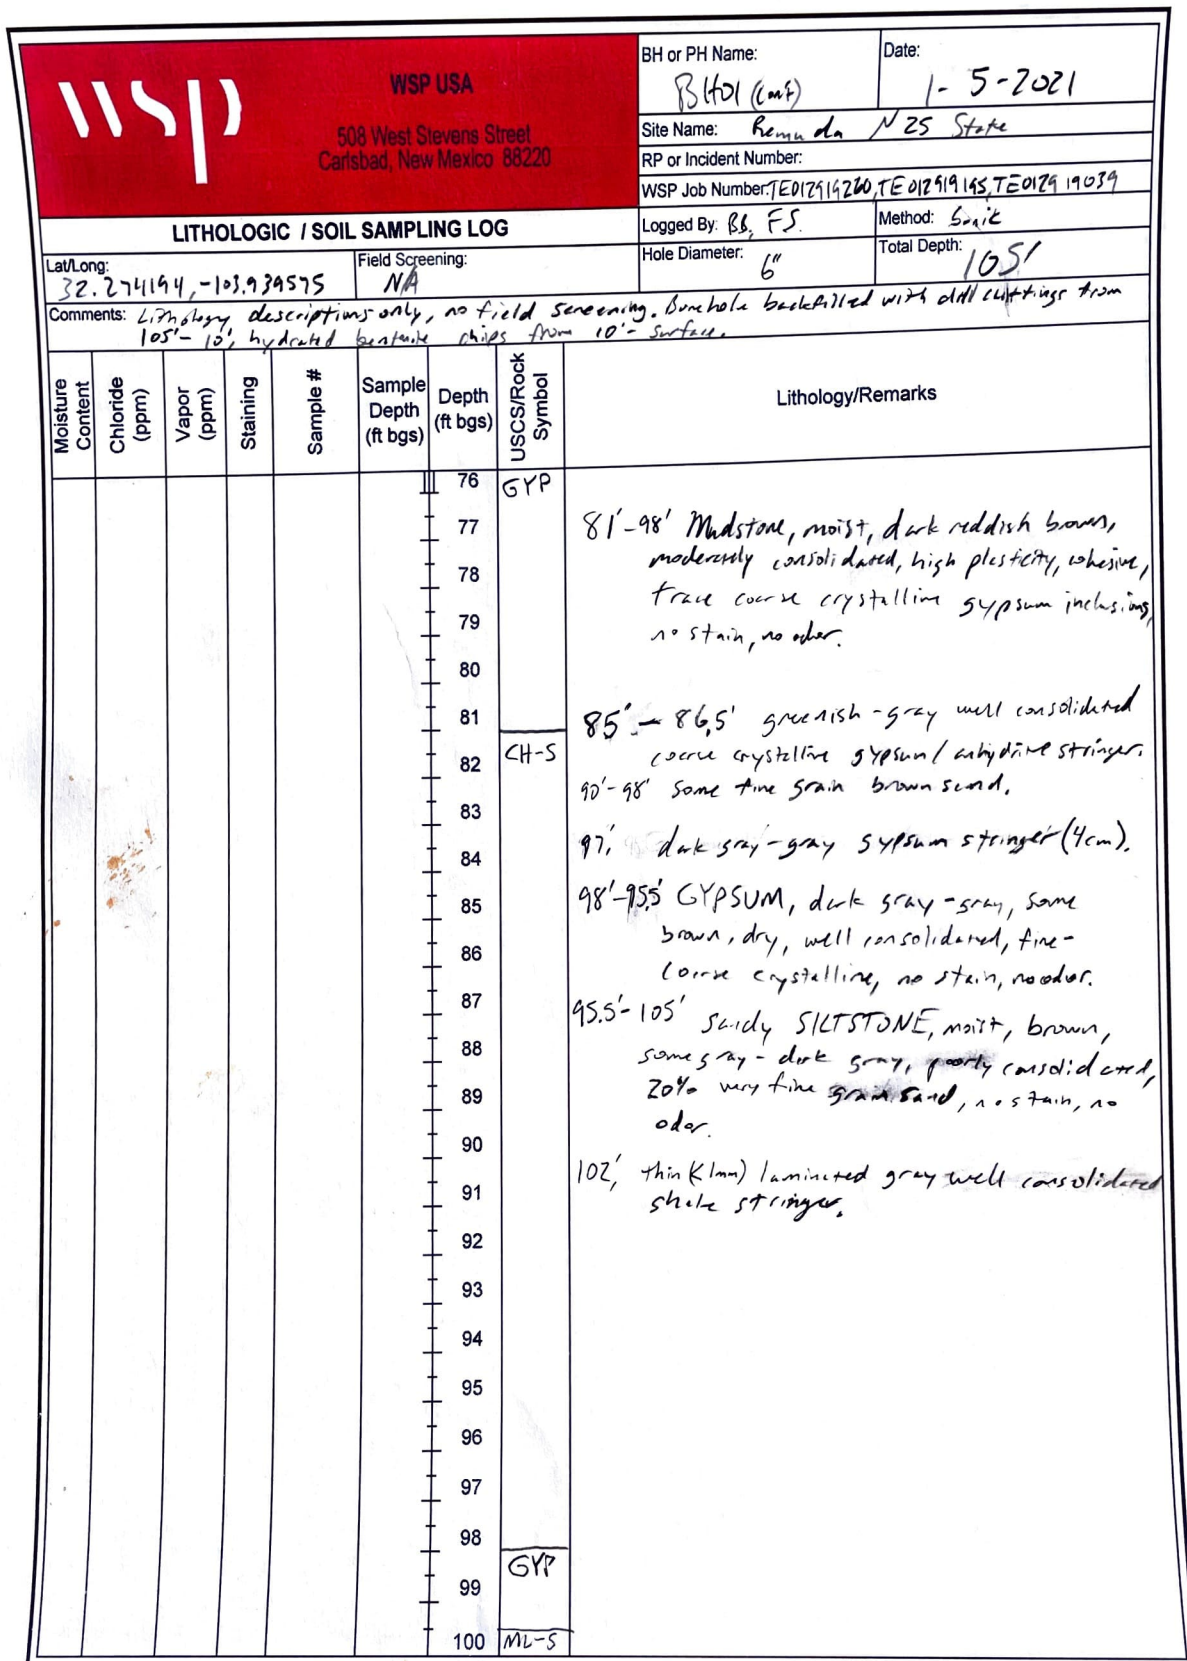 wsp
WSP USA
508 West Stevens Street
Carlsbad, New Mexico 88220
BH or PH Name: BH01 (con't)
Date: 1-5-2021
Site Name: Remuda N 25 State
RP or Incident Number:
WSP Job Number: TE012919260, TE012919195, TE012919039
LITHOLOGIC / SOIL SAMPLING LOG
Logged By: BB, FS.
Method: Sonic
Lat/Long: 32.274194, -103.939575
Field Screening: N/A
Hole Diameter: 6"
Total Depth: 105'
Comments: Lithology descriptions only, no field screening. Borehole backfilled with drill cuttings from
105'-10', hydrated bentonite chips from 10'-surface.
Moisture Content
Chloride (ppm)
Vapor (ppm)
Staining
Sample #
Sample Depth (ft bgs)
Depth (ft bgs)
USCS/Rock Symbol
Lithology/Remarks
76 GYP
77
78
79
80
81
82 CH-S
83
84
85
86
87
88
89
90
91
92
93
94
95
96
97
98
99 GYP
100 ML-S
81'-98' Mudstone, moist, dark reddish brown,
moderately consolidated, high plasticity, cohesive,
trace coarse crystalline gypsum inclusions,
no stain, no odor.
85'-86.5' greenish-gray well consolidated
coarse crystalline gypsum/anhydrite stringer.
90'-98' Some fine grain brown sand.
97', dark gray-gray gypsum stringer (4cm).
98'-95.5' GYPSUM, dark gray-gray, some
brown, dry, well consolidated, fine-
coarse crystalline, no stain, no odor.
95.5'-105' Sandy SILTSTONE, moist, brown,
some gray-dark gray, poorly consolidated,
20% very fine grain sand, no stain, no
odor.
102', thin (<1mm) laminated gray well consolidated
shale stringer.